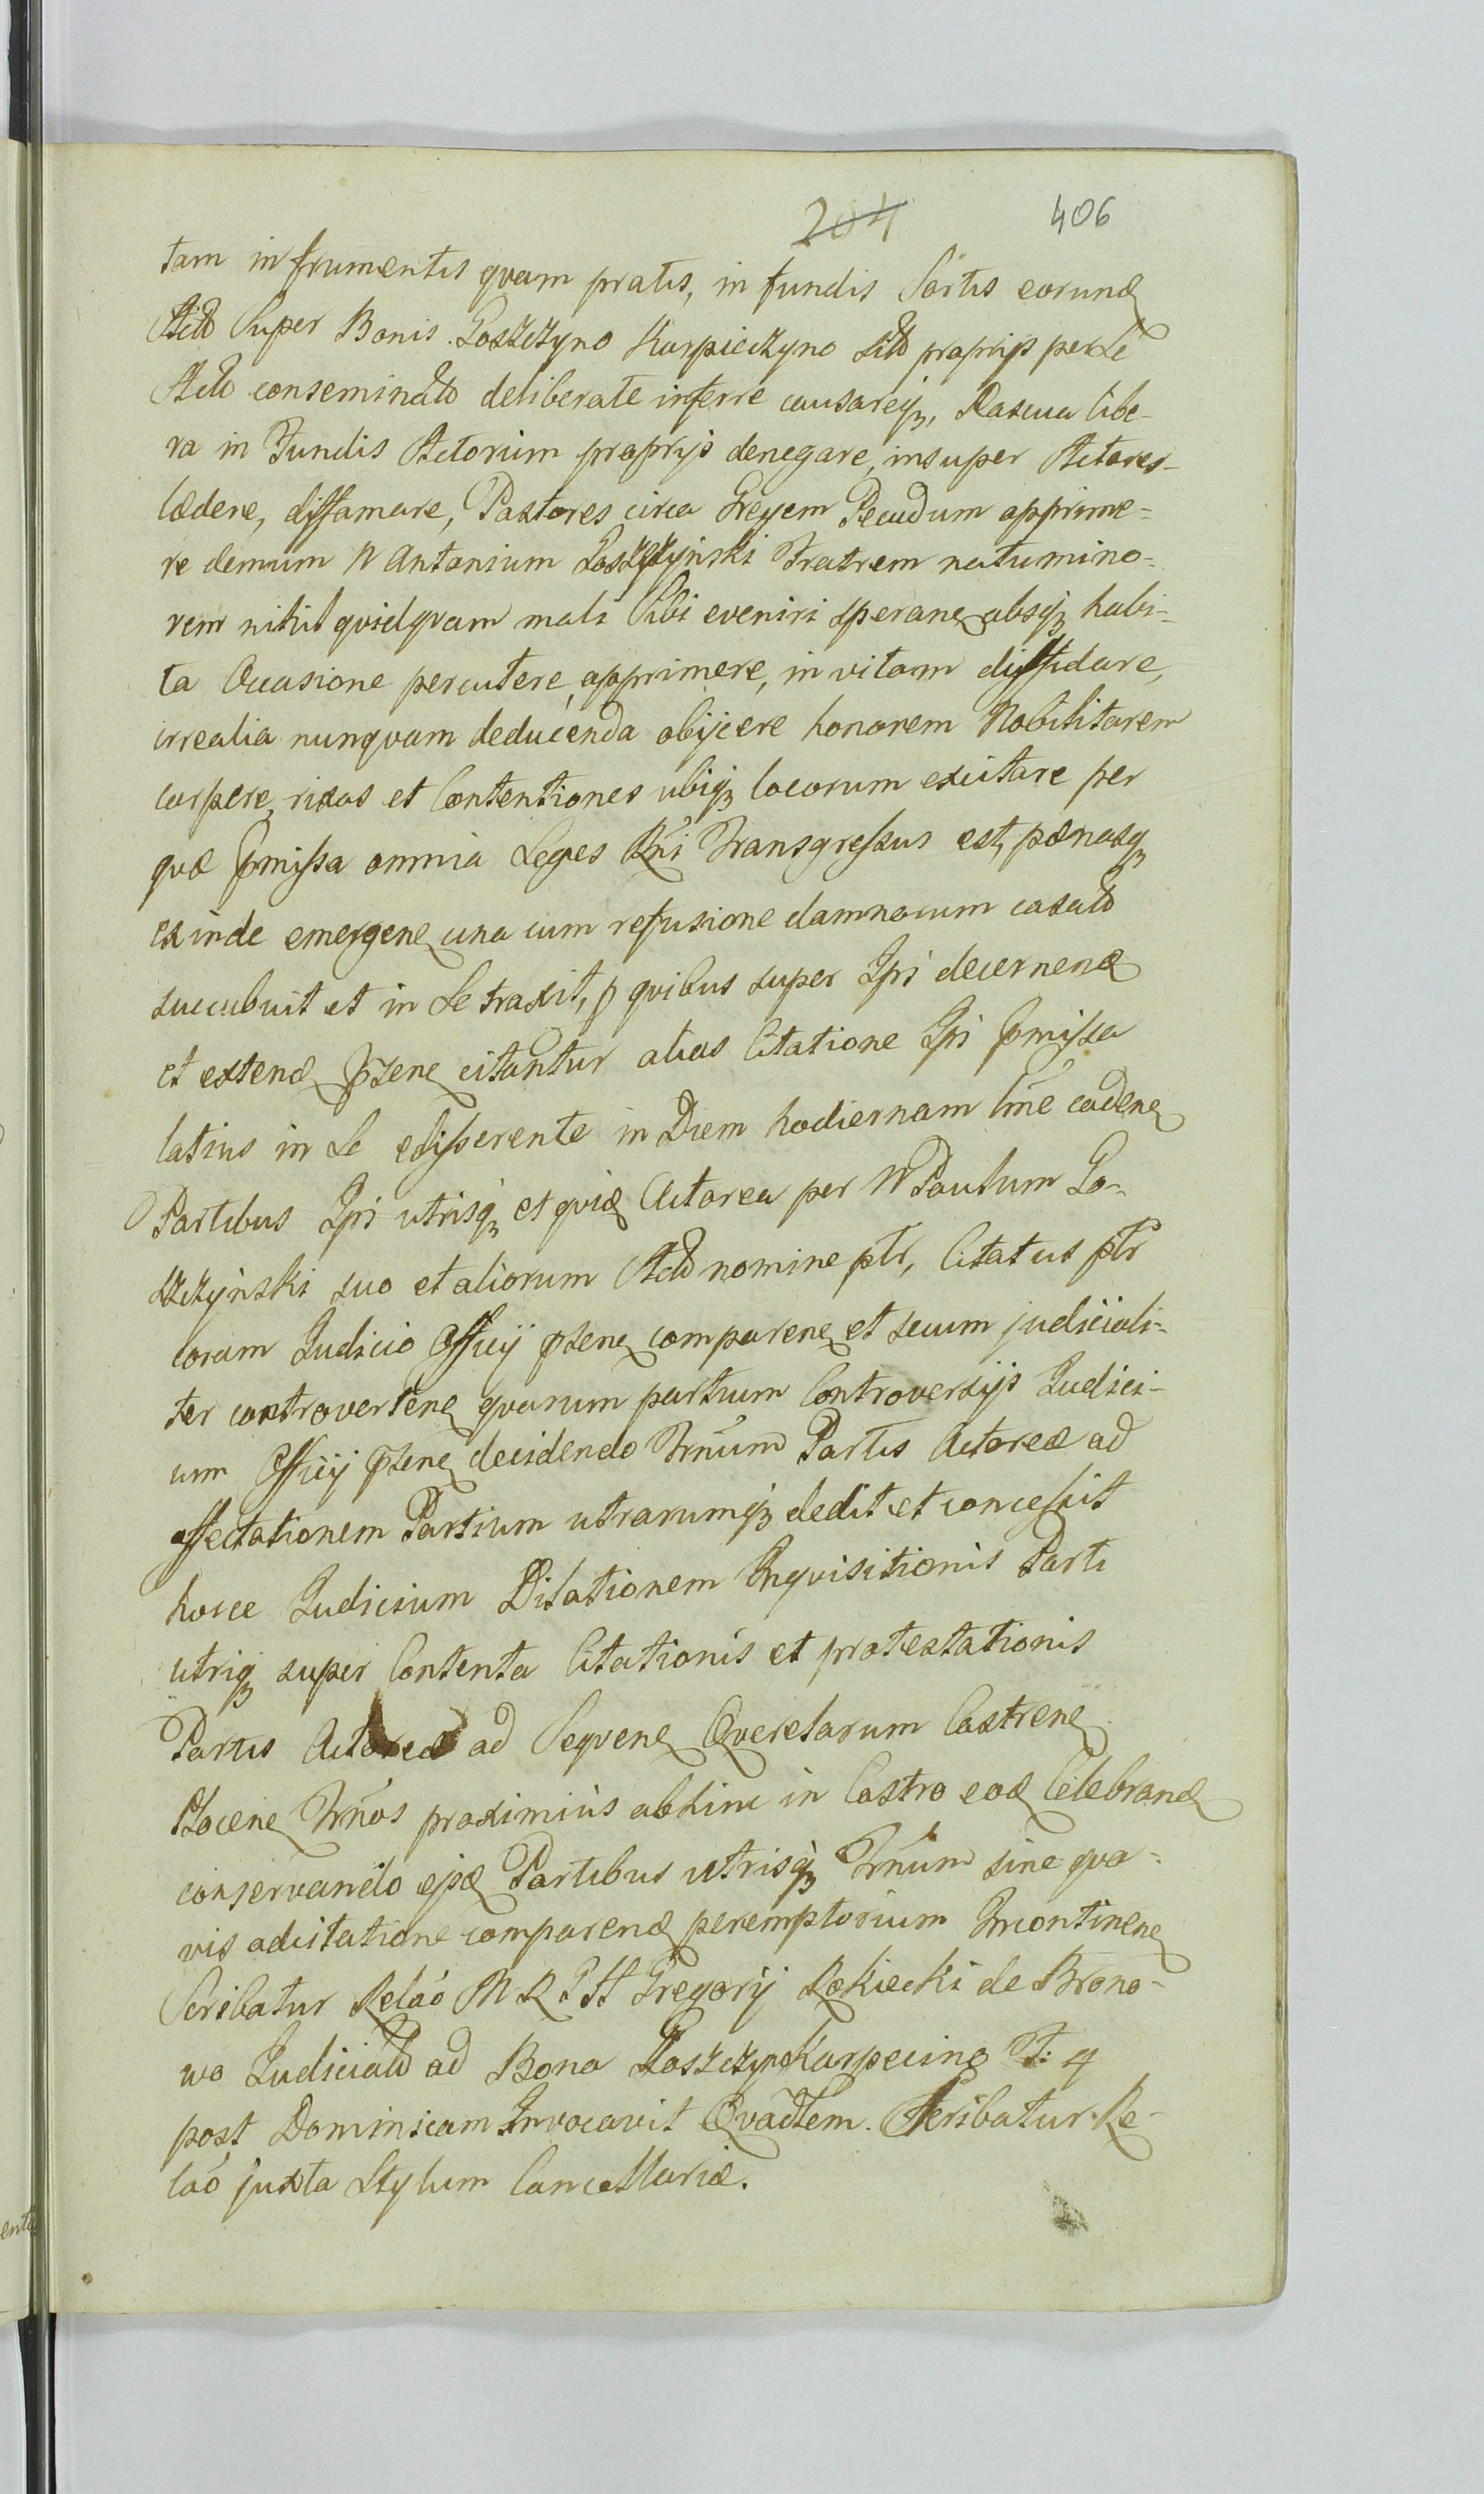 204 406
tam in frumentis qvam pratis, in fundis Sortis eorund
Acto Super Bonis Goszczyno Karpieczyno Sito proprijs per Se
Acto conseminato deliberate inferre causareq, Pascua libe-
ra in Fundis Actorum proprijs denegare, insuper Actores
lædere, diffamare, Pastores circa Gregem Pecudum opprime-
re demum N Antonium Goszczyński Fratrem natu mino-
rem nihil qvidqvam mali Sibi eveniri speran absq habi-
ta Occasione percutere, opprimere, in vitam diffidare,
irrealia nunqvam deducenda obijcere honorem Nobilitarem
carpere, rixas et Contentiones ubiq locorum excitare per
qvæ pmissa omnia Leges Rni Transgressus est, pænasq
exinde emergen una cum refusione damnorum casato
succubuit et in Se traxit, p qvibus super Ipi decernend
et extend pzen citantur alias Citatione Ipi pmissa
latius in Se edisserente in Diem hodiernam lme caden
Partibus Ipi utrisq et qvid Actorea per N Paulum Go-
szczyński suo et aliorum Acto nomine ptr, Citatus ptr
coram Judicio Officij pzen comparen et secum judiciali-
ter controverten qvarum partium Controversijs Judici-
um Officij pzen decidendo Trnum Partis Actoreæ ad
affectationem Partium utrarumq dedit et concessit
hocce Judicium Dilationem Inqvisitionis Parti
utriq super Contenta Citationis et protestationis
Partis Actoreæ ad Seqven Qverelarum Castren
Plocen Trnos proximius abhinc in Castro eod Celebrand
conservando ejsd Partibus utrisq Trnum sine qva-
vis adcitatione comparend peremptorium Incontinen
Scribatur Relao M R P H Gregorij Rokicki de Brono-
wo Judiciato ad Bona Goszczyno Karpecino F: 4
post Dominicam Invocavit Qvadlem. Scribatur Re-
lao juxta Stylum Cancellariæ.